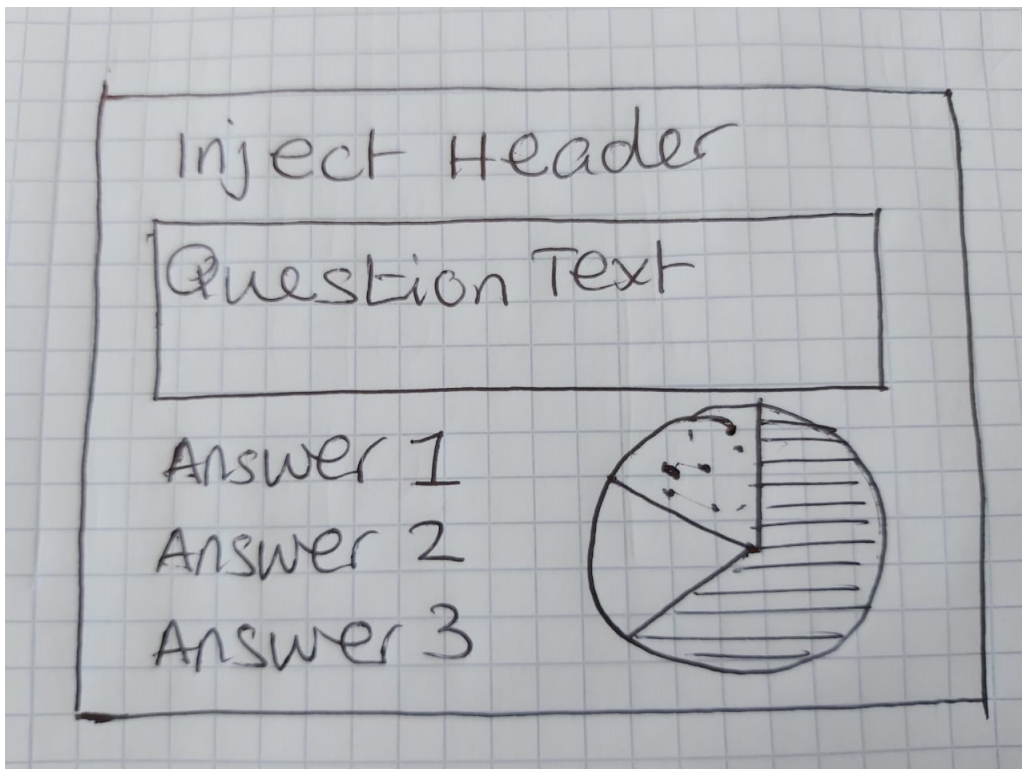 Inject Header
Question Text
Answer 1
Answer 2
Answer 3